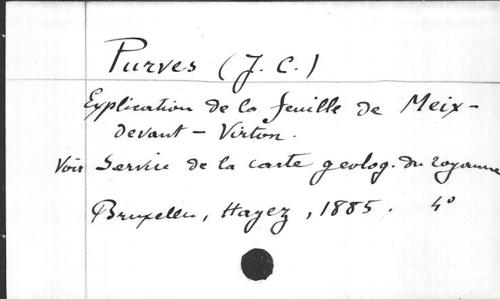 Purves (J. C.)
Explication de la feuille de Meix-
devant - Virton.
Voir Service de la carte geolog. du royaume
Bruxelles, Hayez, 1885. 4°